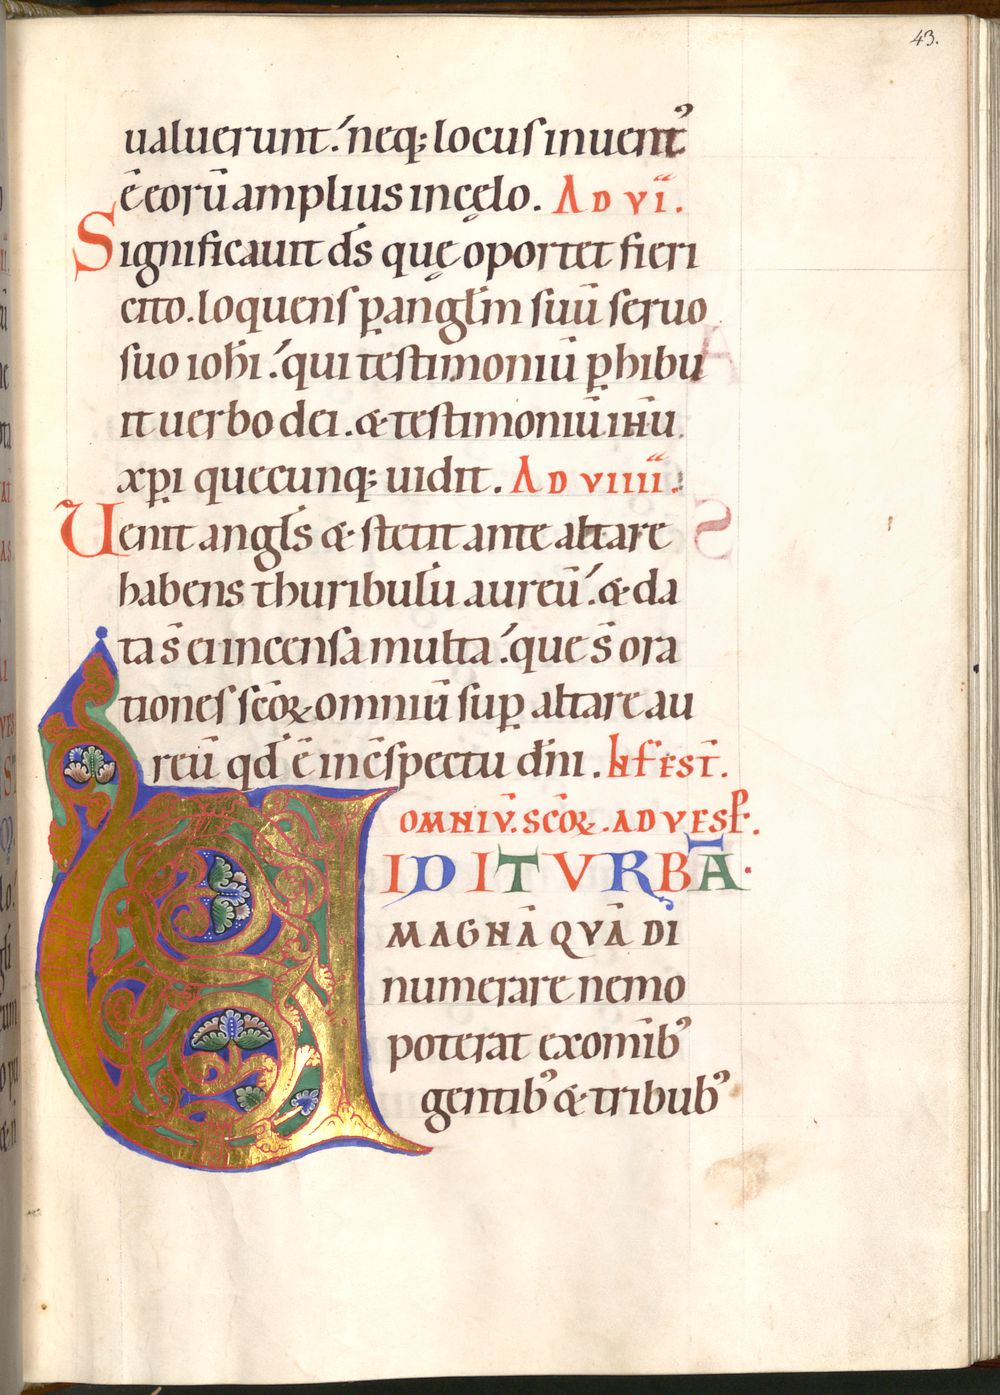 43.
ualuerunt. neq; locus inuent᾿
ē eorū amplius incęlo. AD VI.
Significauit ds̄ quę oportet fieri
cito. loquens ꝑ angl̄m suū seruo
suo ioh̄i. qui testimoniū ꝑhibu
it uerbo dei. & testimoniū ih̄u
xp̄i quecunq; uidit. AD VIIII.
Uenit angl̄s & stetit ante altare
habens thuribulū aureū. & da
ta s̄ ei incensa multa. que s̄ ora
tiones sc̄oꝝ omniū suꝑ altare au
reū qd̄ ē in c̄spectu dn̄i. IN FEST̄.
OMNIV̄. SC̄OꝜ. AD VESP̄.
VIDI TVRBĀ
MAGNĀ QVĀ DI
numerare nemo
poterat ex omīb᾿
gentib᾿ & tribub᾿